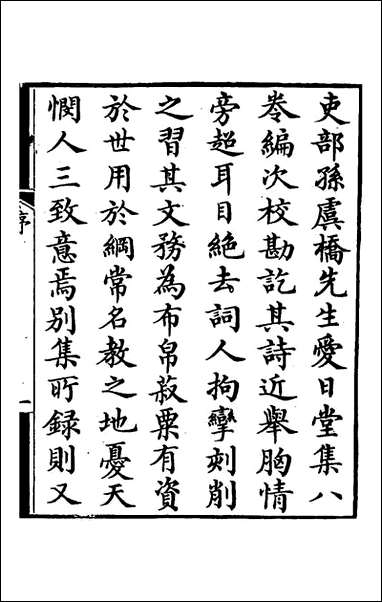 吏部孫虞橋先生愛日堂集八
卷編次校勘訖其詩近舉胸情
旁超耳目絶去詞人拘攣刻削
之習其文務為布帛菽粟有資
於世用於綱常名教之地憂天
憫人三致意焉别集所録則又
序
一